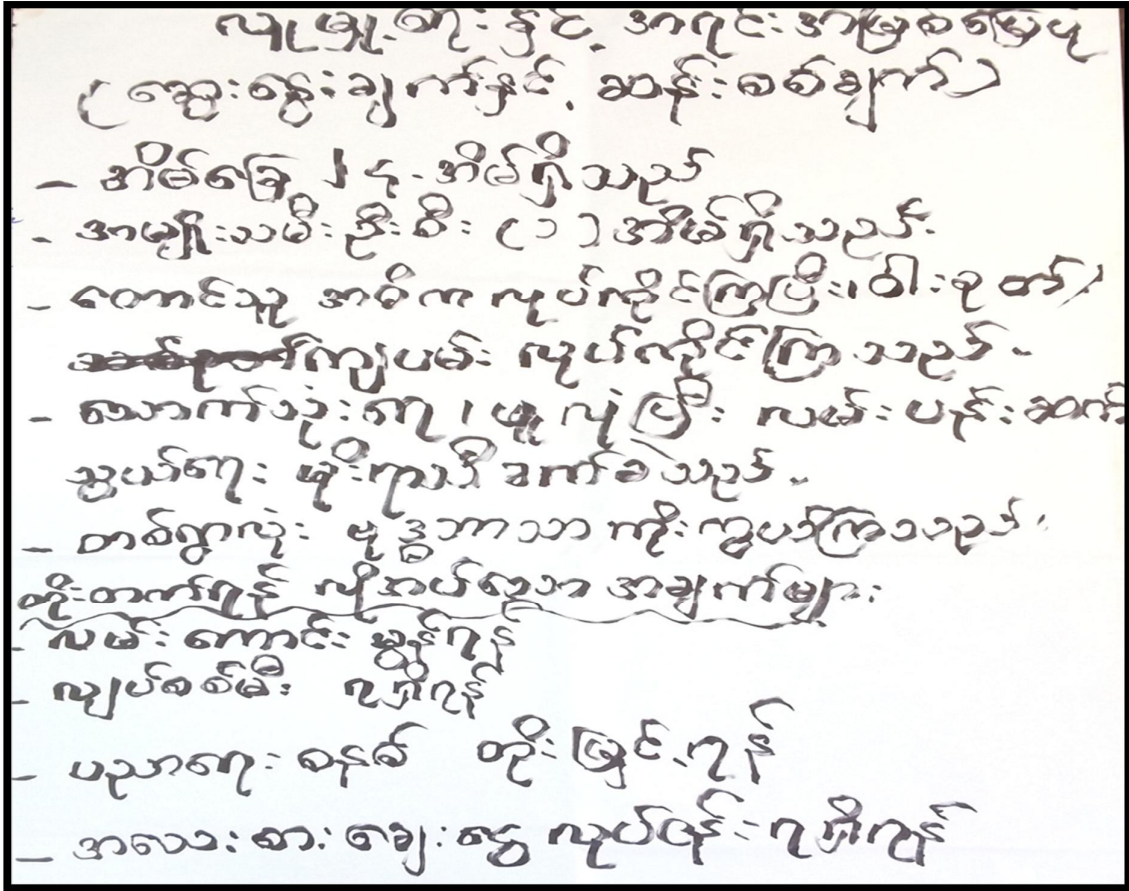 လူမှုရေးနှင့် အရင်းအမြစ်မြေပုံ
( ဆွေးနွေးချက်နှင့် ဆန်းစစ်ချက် )
- အိမ်ခြေ ၂၄ အိမ်ရှိသည်
- အမျိုးသမီးဦးစီး (၁) အိမ်ရှိသည်။
- တောင်သူ အဓိက လုပ်ကိုင်ကြပြီး၊ ဝါးခုတ်/
ကျပမ်း လုပ်ကိုင်ကြသည်။
- သောက်သုံးရေ၊ ဖူလုံပြီး လမ်းပန်းဆက်
သွယ်ရေး မိုးရာသီ ခက်ခဲသည်။
- တစ်ရွာလုံး ဗုဒ္ဓဘာသာ ကိုးကွယ်ကြသည်။
တိုးတက်ရန် လိုအပ်သော အချက်များ
- လမ်းကောင်းမွန်ရန်
- လျှပ်စစ်မီး ရရှိရန်
- ပညာရေးစနစ် တိုးမြှင့်ရန်
- အသေးစား ချေးငွေ လုပ်ငန်းရရှိရန်